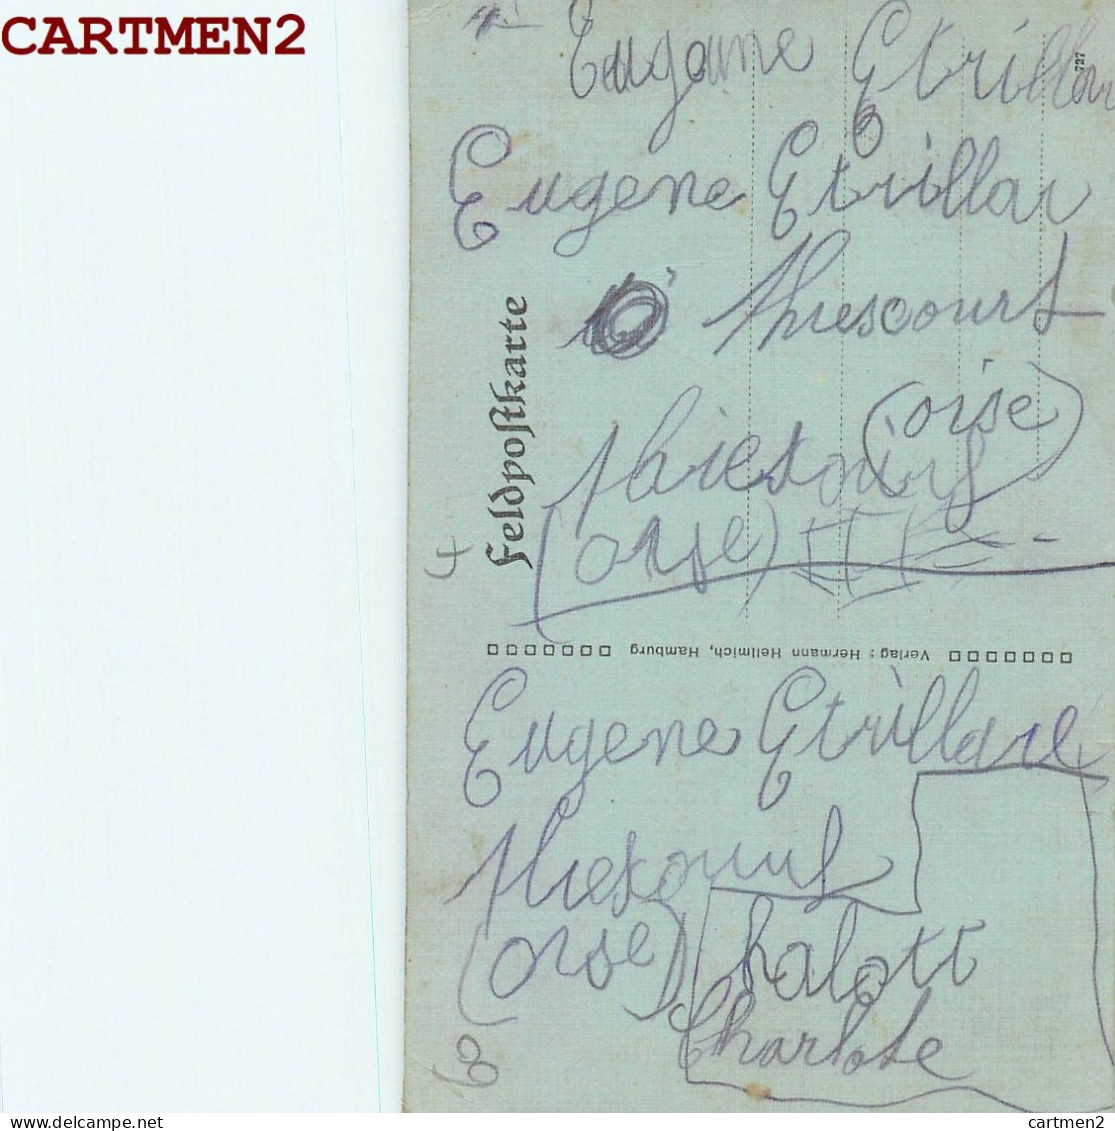 CARTMEN2
727
Eugane Etrillar
Eugene Etrillar
Thiescourt
(oise)
Feldpostkarte
Thiescourt
(oise)
4
Verlag: Hermann Hellmich, Hamburg
Eugene Etrillard
Thiescourt
(oise)
halott
Charlote
cartmen2